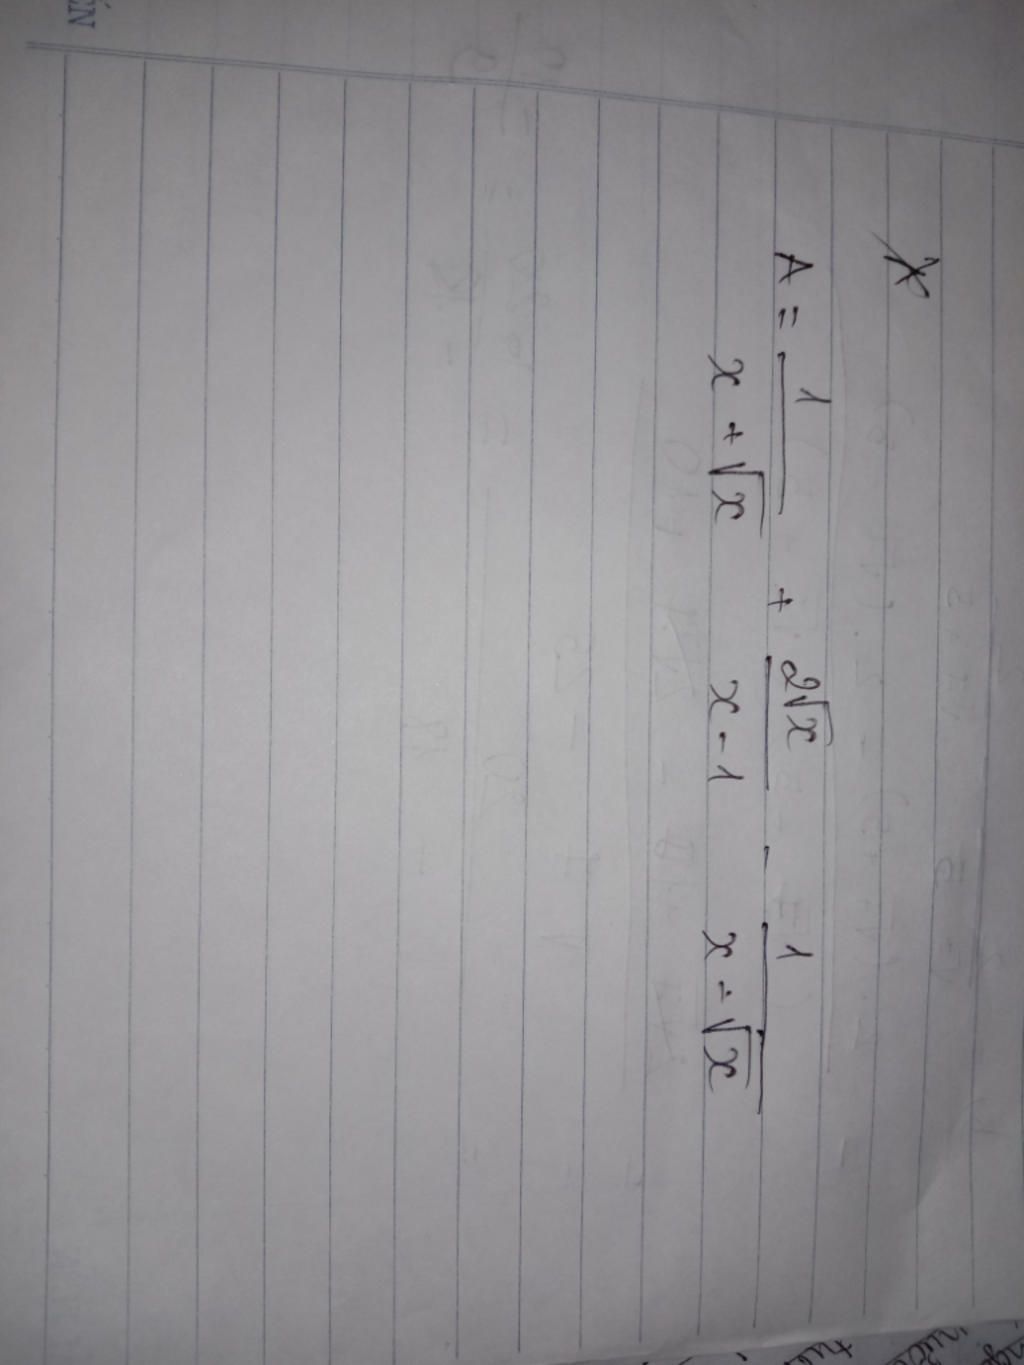 A = 1/(x + √x) + 2√x/(x - 1) - 1/(x - √x)